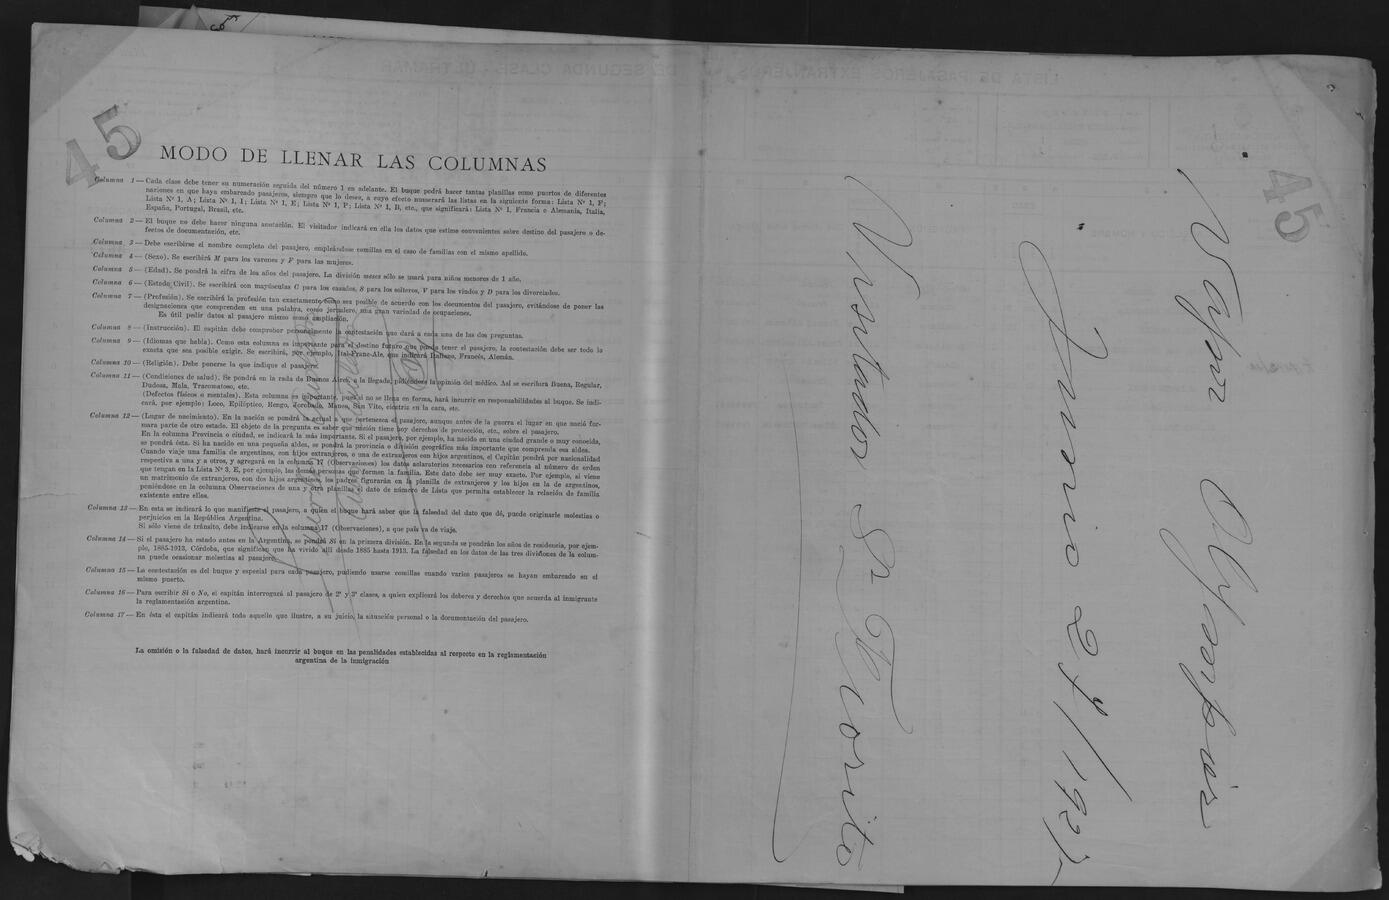 45
MODO DE LLENAR LAS COLUMNAS
Columna 1 — Cada clase debe tener su numeración seguida del número 1 en adelante. El buque podrá hacer tantas planillas como puertos de diferentes
naciones en que haya embarcado pasajeros, siempre que lo desee, a cuyo efecto numerará las listas en la siguiente forma: Lista Nº 1, F;
Lista Nº 1, A; Lista Nº 1, I; Lista Nº 1, E; Lista Nº 1, P; Lista Nº 1, B, etc., que significará: Lista Nº 1, Francia o Alemania, Italia,
España, Portugal, Brasil, etc.
Columna 2 — El buque no debe hacer ninguna anotación. El visitador indicará en ella los datos que estime convenientes sobre destino del pasajero o de-
fectos de documentación, etc.
Columna 3 — Debe escribirse el nombre completo del pasajero, empleándose comillas en el caso de familias con el mismo apellido.
Columna 4 — (Sexo). Se escribirá M para los varones y F para las mujeres.
Columna 5 — (Edad). Se pondrá la cifra de los años del pasajero. La división meses sólo se usará para niños menores de 1 año.
Columna 6 — (Estado Civil). Se escribirá con mayúsculas C para los casados, S para los solteros, V para los viudos y D para los divorciados.
Columna 7 — (Profesión). Se escribirá la profesión tan exactamente como sea posible de acuerdo con los documentos del pasajero, evitándose de poner las
designaciones que comprenden en una palabra, como jornalero, una gran variedad de ocupaciones.
Es útil pedir datos al pasajero mismo como ampliación.
Columna 8 — (Instrucción). El capitán debe comprobar personalmente la contestación que dará a cada una de las dos preguntas.
Columna 9 — (Idiomas que habla). Como esta columna es importante para el destino futuro que pueda tener el pasajero, la contestación debe ser todo lo
exacta que sea posible exigir. Se escribirá, por ejemplo, Ital-Franc-Ale, que indicará Italiano, Francés, Alemán.
Columna 10 — (Religión). Debe ponerse la que indique el pasajero.
Columna 11 — (Condiciones de salud). Se pondrá en la rada de Buenos Aires, a la llegada, pidiéndose la opinión del médico. Así se escribirá Buena, Regular,
Dudosa, Mala, Tracomatoso, etc.
(Defectos físicos o mentales). Esta columna es importante, pues si no se llena en forma, hará incurrir en responsabilidades al buque. Se indi-
cará, por ejemplo: Loco, Epilóptico, Rengo, Jorobado, Manco, San Vito, cicatriz en la cara, etc.
Columna 12 — (Lugar de nacimiento). En la nación se pondrá la actual a que pertenezca el pasajero, aunque antes de la guerra el lugar en que nació for-
mara parte de otro estado. El objeto de la pregunta es saber que nación tiene hoy derechos de protección, etc., sobre el pasajero.
En la columna Provincia o ciudad, se indicará la más importante. Si el pasajero, por ejemplo, ha nacido en una ciudad grande o muy conocida,
se pondrá ésta. Si ha nacido en una pequeña aldea, se pondrá la provincia o división geográfica más importante que comprenda esa aldea.
Cuando viaje una familia de argentinos, con hijos extranjeros, o una de extranjeros con hijos argentinos, el Capitán pondrá por nacionalidad
respectiva a una y a otros, y agregará en la columna 17 (Observaciones) los datos aclaratorios necesarios con referencia al número de orden
que tengan en la Lista Nº 3, E, por ejemplo, las demás personas que formen la familia. Este dato debe ser muy exacto. Por ejemplo, si viene
un matrimonio de extranjeros, con dos hijos argentinos, los padres figurarán en la planilla de extranjeros y los hijos en la de argentinos,
poniéndose en la columna Observaciones de una y otra planillas el dato de número de Lista que permita establecer la relación de familia
existente entre ellos.
Columna 13 — En esta se indicará lo que manifieste el pasajero, a quien el buque hará saber que la falsedad del dato que dé, puede originarle molestias o
perjuicios en la República Argentina.
Si sólo viene de tránsito, debe indicarse en la columna 17 (Observaciones), a que país va de viaje.
Columna 14 — Si el pasajero ha estado antes en la Argentina, se pondrá Sí en la primera división. En la segunda se pondrán los años de residencia, por ejem-
plo, 1885-1913, Córdoba, que significa que ha vivido allí desde 1885 hasta 1913. La falsedad en los datos de las tres divisiones de la colum-
na puede ocasionar molestias al pasajero.
Columna 15 — La contestación es del buque y especial para cada pasajero, pudiendo usarse comillas cuando varios pasajeros se hayan embarcado en el
mismo puerto.
Columna 16 — Para escribir Sí o No, el capitán interrogará al pasajero de 2ª y 3ª clases, a quien explicará los deberes y derechos que acuerda al inmigrante
la reglamentación argentina.
Columna 17 — En ésta el capitán indicará todo aquello que ilustre, a su juicio, la situación personal o la documentación del pasajero.
La omisión o la falsedad de datos, hará incurrir al buque en las penalidades establecidas al respecto en la reglamentación
argentina de la inmigración
45
Vapor
Junio 27/1927
Visitador Sr Fiorito